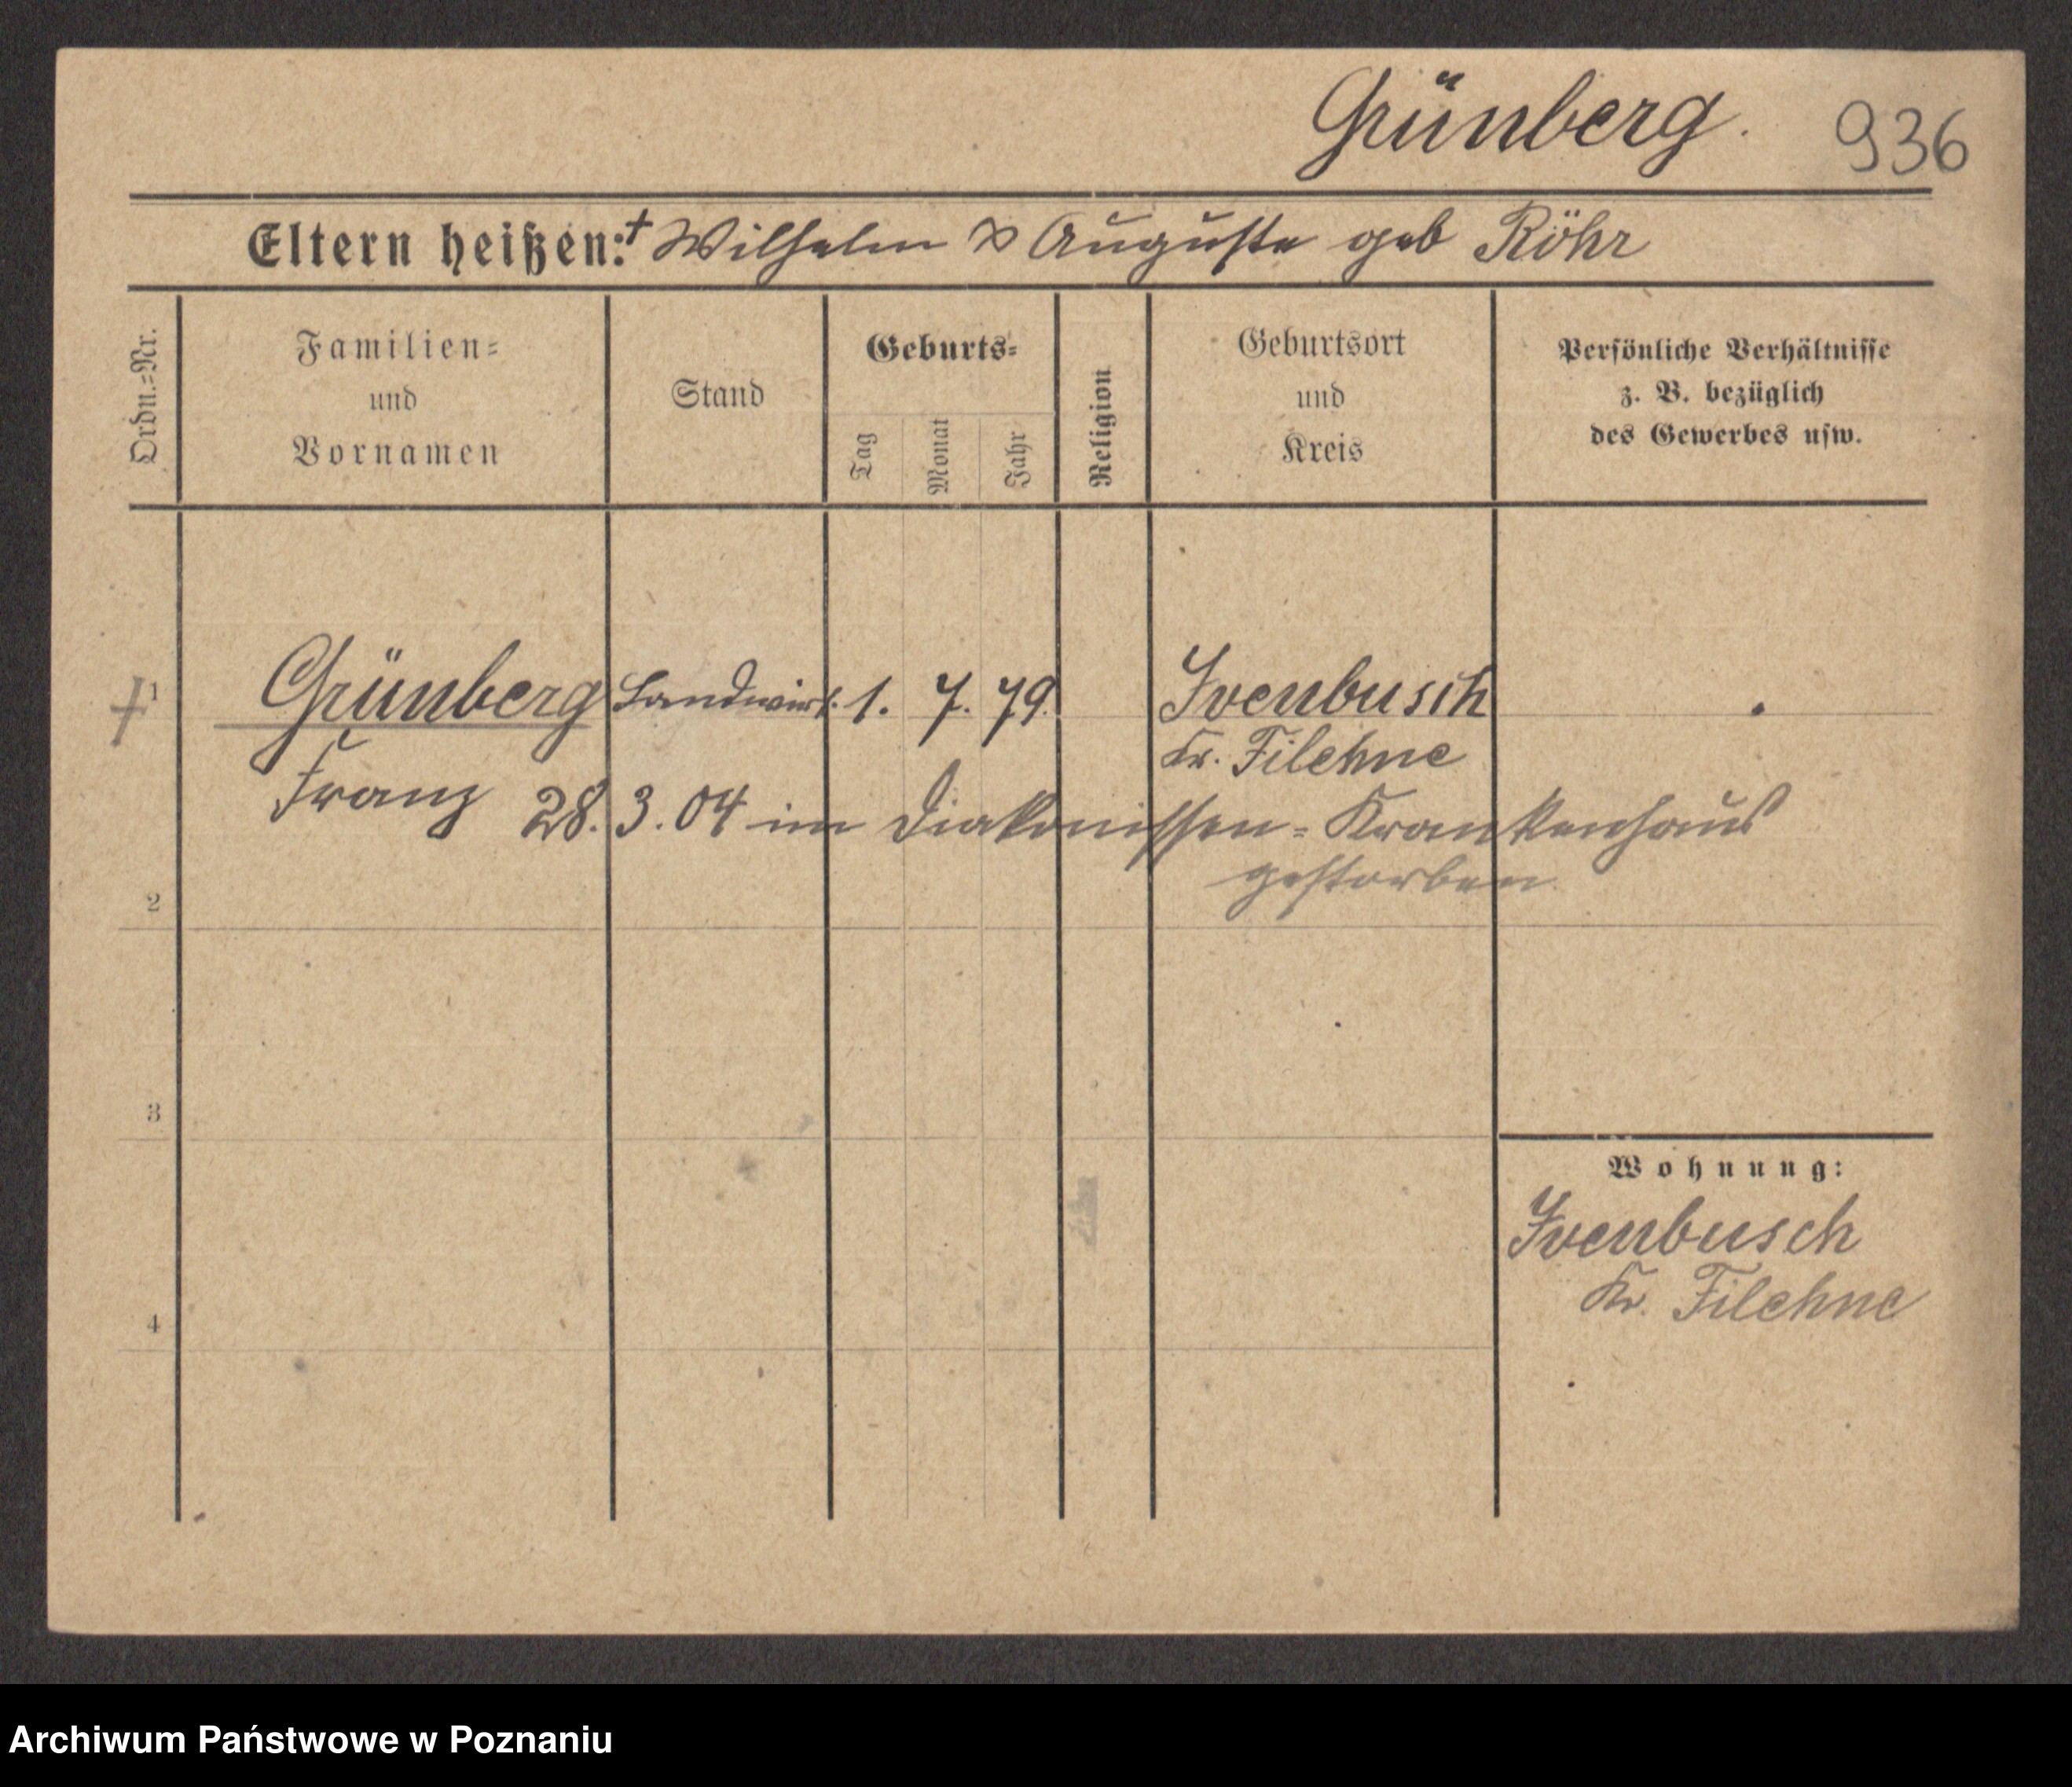 Grünberg. 936
Eltern heißen: † Wilhelm & Auguste geb Röhr
Ordn.=Nr.
Familien=
und
Vornamen
Stand
Geburts=
Tag
Monat
Jahr
Religion
Geburtsort
und
Kreis
Persönliche Verhältnisse
z. B. bezüglich
des Gewerbes usw.
† 1 Grünberg Landwirt. 1. 7. 79. Ivenbusch
Kr. Filehne
Franz 28. 3. 04 im Diakonissen=Krankenhaus
gestorben
2
3
Wohnung:
Ivenbusch
Kr. Filehne
4
Archiwum Państwowe w Poznaniu